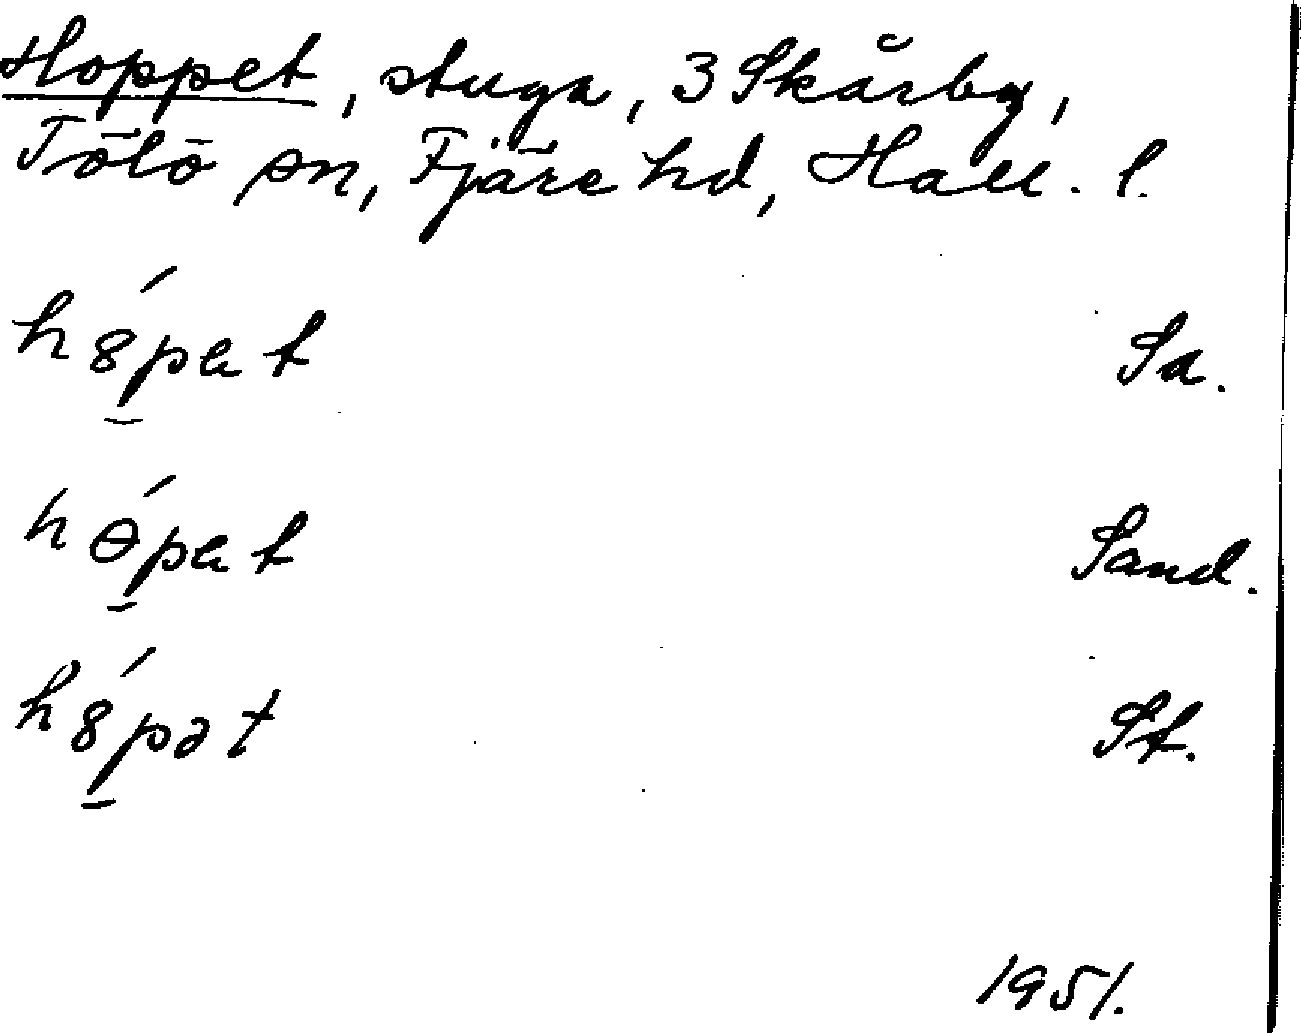 Hoppet, stuga, 3 Skårby,
Tölö sn, Fjäre hd, Hall. l.
h8́p̱et Sa.
hɵ́p̱et Sand.
h8́p̱ət St.
1951.